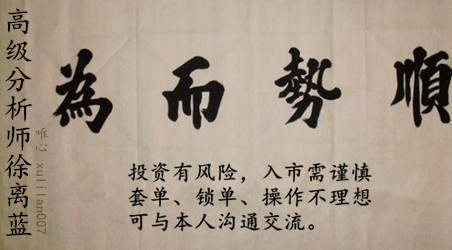 順勢而為
高级分析师徐离蓝
投资有风险，入市需谨慎
套单、锁单、操作不理想
可与本人沟通交流。